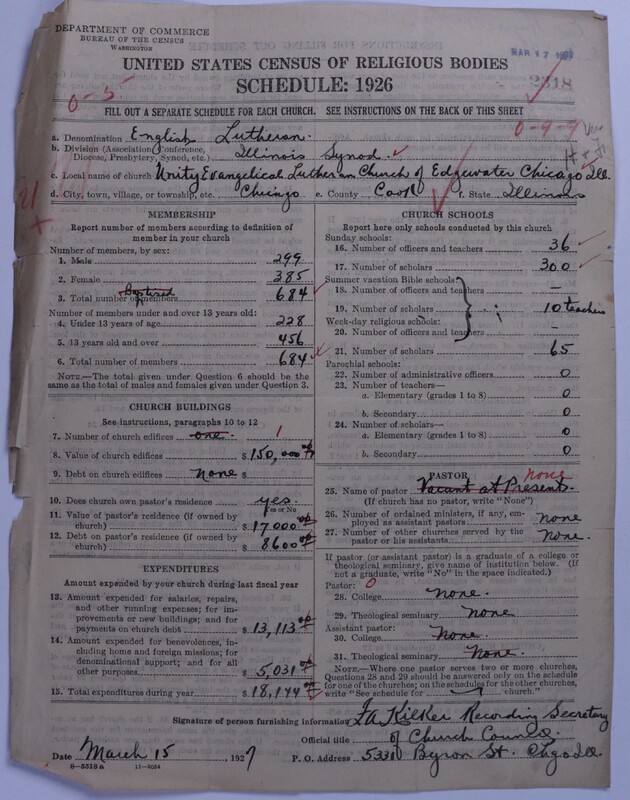 DEPARTMENT OF COMMERCE
BUREAU OF THE CENSUS
WASHINGTON
MAR 17
UNITED STATES CENSUS OF RELIGIOUS BODIES
SCHEDULE: 1926
0-5
FILL OUT A SEPARATE SCHEDULE FOR EACH CHURCH. SEE INSTRUCTIONS ON THE BACK OF THIS SHEET
a. Denomination English Lutheran.
b. Division (Association, Conference, Diocese, Presbytery, Synod, etc.) Illinois Synod.
c. Local name of church Unity Evangelical Lutheran Church of Edgewater Chicago Ill.
d. City, town, village, or township, etc. Chicago e. County Cook f. State Illinois
MEMBERSHIP
Report number of members according to definition of member in your church
Number of members, by sex:
1. Male 299
2. Female 385
3. Total number of Baptized members 684
Number of members under and over 13 years old:
4. Under 13 years of age 228
5. 13 years old and over 456
6. Total number of members 684
NOTE.—The total given under Question 6 should be the same as the total of males and females given under Question 3.
CHURCH BUILDINGS
See instructions, paragraphs 10 to 12
7. Number of church edifices one. 1
8. Value of church edifices $150,000 00
9. Debt on church edifices None $
10. Does church own pastor's residence yes.
Yes or No
11. Value of pastor's residence (if owned by church) $17000 00
12. Debt on pastor's residence (if owned by church) $8600 00
EXPENDITURES
Amount expended by your church during last fiscal year
13. Amount expended for salaries, repairs, and other running expenses; for improvements or new buildings; and for payments on church debt $13,113 00
14. Amount expended for benevolences, including home and foreign missions; for denominational support; and for all other purposes $5,031 00
15. Total expenditures during year $18,144 00
CHURCH SCHOOLS
Report here only schools conducted by this church
Sunday schools:
16. Number of officers and teachers 36
17. Number of scholars 300
Summer vacation Bible schools:
18. Number of officers and teachers –
19. Number of scholars 10 teachers
Week-day religious schools:
20. Number of officers and teachers –
21. Number of scholars 65
Parochial schools:
22. Number of administrative officers 0
23. Number of teachers—
a. Elementary (grades 1 to 8) 0
b. Secondary 0
24. Number of scholars—
a. Elementary (grades 1 to 8) 0
b. Secondary 0
PASTOR
none
25. Name of pastor Vacant at Present.
(If church has no pastor, write "None")
26. Number of ordained ministers, if any, employed as assistant pastors none
27. Number of other churches served by the pastor or his assistants none.
If pastor (or assistant pastor) is a graduate of a college or theological seminary, give name of institution below. (If not a graduate, write "No" in the space indicated.)
Pastor: 0
28. College none.
29. Theological seminary none
Assistant pastor:
30. College none.
31. Theological seminary none.
NOTE.—Where one pastor serves two or more churches, Questions 28 and 29 should be answered only on the schedule for one of the churches; on the schedules for the other churches, write "See schedule for church."
Signature of person furnishing information Recording Secretary
Official title of Church Council
Date March 15, 1927 P. O. Address 5331 Byron St. Chgo Ill.
8-5318a 11-2034